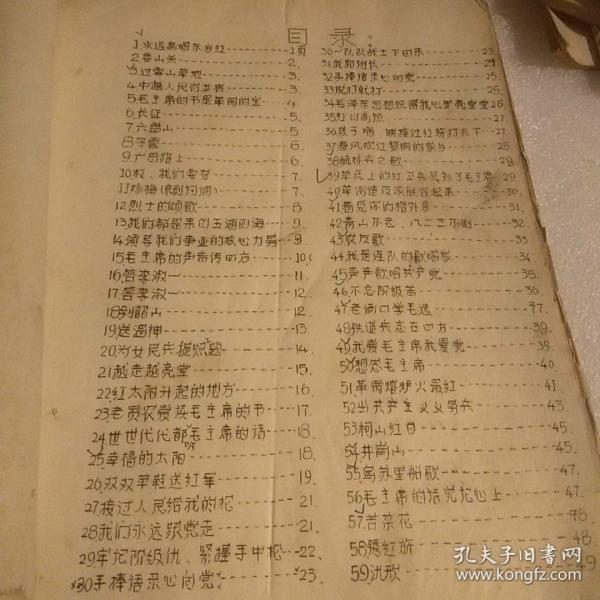 目 录
1.永远高唱东方红-----1页
2.娄山关-----2.
3.过雪山草地-----3.
4.中越人民-----3.
5.毛主席的书是革命的宝-----4.
6.长征-----5.
7.六盘山-----5.
8.-----6.
9.广昌路上-----6.
10.-----7.
11.咏梅-----7.
12.烈士的颂歌-----8.
13.我们都是来自五湖四海-----9.
14.领导我们事业的核心力量-----9.
15.毛主席的声音传四方-----10.
16.答李淑一-----11.
17.答李淑一-----12.
18.到韶山-----12.
19.送温神-----13
20.为女民兵提照题-----14.
21.越走越亮堂-----15.
22.红太阳升起的地方-----16.
23.老贫农爱读毛主席的书---17.
24.世世代代都听毛主席的话---18.
25.幸福的太阳-----18.
26.双双草鞋送红军-----19.
27.接过人民给我的枪-----21.
28.我们永远跟党走-----21.
29.牢记阶级仇、紧握手中枪---22.
30.手捧语录心向党-----23.
30一队队战士下田来-----23.
31.我和班长-----24
32.手捧语录心向党-----25.
33.说打就打-----25.
34.毛泽东思想照得我心里亮堂堂--26.
35.红日高照-----26.
36.孩子啊、快接过红旗打天下---27.
37.春风吹过黎明的家乡-----27.
38.航标兵之歌-----28.
39.草原上的红卫兵见到了毛主席--29
40.革命造反派联合起来-----30.
41.看见你们格外亲-----31.
42.青山不老、八二三不倒-----32.
43.农友歌-----33.
44.我是连队的歌唱家-----34.
45.声声歌唱共产党-----35.
46.不忘阶级苦-----36
47.老俩口学毛选-----37.
48.铁道兵志在四方-----39.
49.我爱毛主席我爱党-----39.
50.想念毛主席-----40.
51.革命熔炉火最红-----41
52.当共产主义义务兵-----43.
53.柯山红日-----45.
54.井岗山-----45.
55.乌苏里船歌-----47.
56.毛主席的话儿记心上-----47.
57.苦菜花-----48
58.绣红旗-----48.
59.洗衣歌-----49
孔夫子旧书网
www.kongfz.com